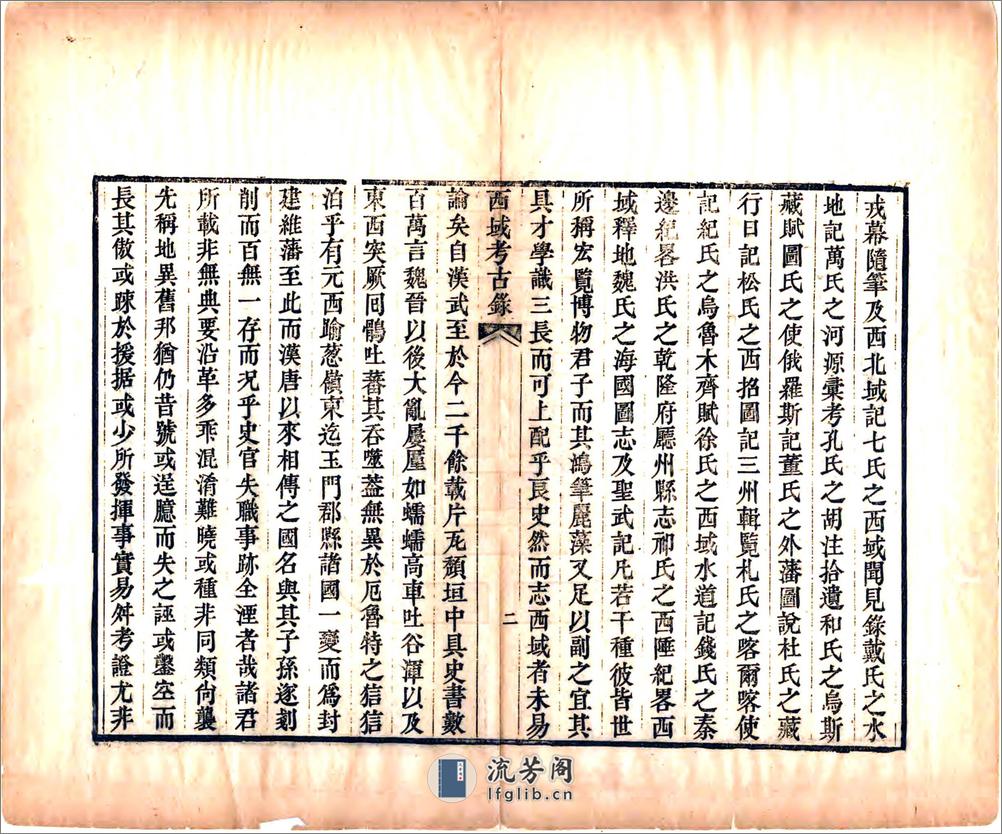 戎幕隨筆及西北域記七氏之西域聞見錄戴氏之水
地記萬氏之河源彙考孔氏之胡注拾遺和氏之烏斯
藏賦圖氏之使俄羅斯記董氏之外藩圖說杜氏之藏
行日記松氏之西招圖記三州輯覽札氏之喀爾喀使
記紀氏之烏魯木齊賦徐氏之西域水道記錢氏之秦
邊紀畧洪氏之乾隆府廳州縣志祁氏之西陲紀畧西
域釋地魏氏之海國圖志及聖武記凡若干種彼皆世
所稱宏覽博物君子而其鴻筆麗藻又足以副之宜其
具才學識三長而可上配乎良史然而志西域者未易
西域考古錄
二
論矣自漢武至於今二千餘載片瓦頹垣中具史書數
百萬言魏晉以後大亂屢屋如蠕蠕高車吐谷渾以及
東西突厥回鶻吐蕃其吞噬葢無異於厄魯特之狺狺
泊乎有元西踰葱嶺東迄玉門郡縣諸國一變而爲封
建維藩至此而漢唐以來相傳之國名與其子孫逐刻
削而百無一存而况乎史官失職事跡全湮者哉諸君
所載非無典要沿革多乖混淆難曉或種非同類尙襲
先稱地異舊邦猶仍昔號或逞臆而失之誣或鑿空而
長其傲或疎於援据或少所發揮事實易舛考證尤非
流芳阁
lfglib.cn